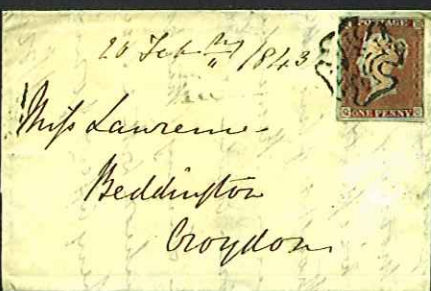 20 Feb 1843
POSTAGE
ONE PENNY
Miss Lawrence
Beddington
Croydon